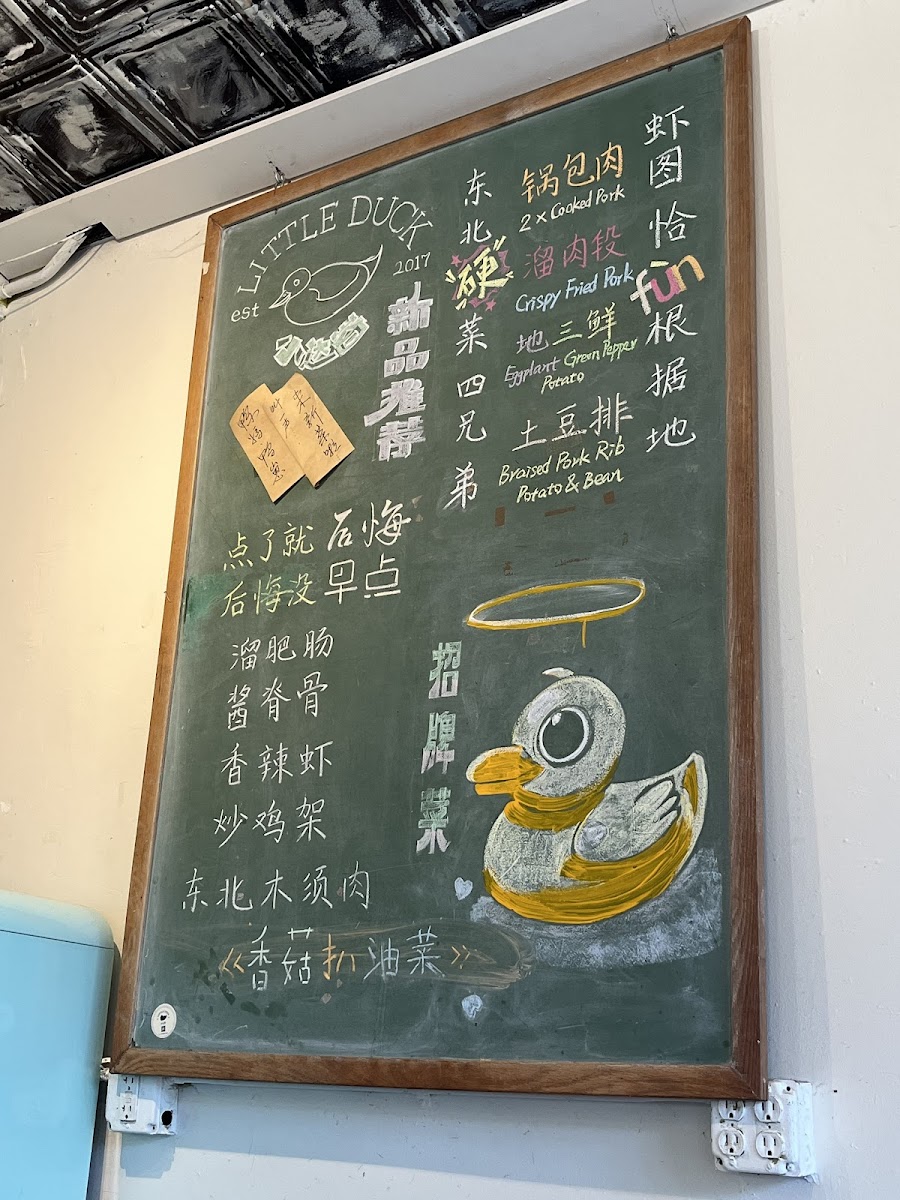 LITTLE DUCK
est 2017
新品推荐
鸭妈鸭崽
叫一声
来新菜啦
点了就后悔
后悔没早点
溜肥肠
酱脊骨
香辣虾
炒鸡架
东北木须肉
《香菇扒油菜》
招牌菜
东北硬菜四兄弟
锅包肉
2x Cooked Pork
溜肉段
Crispy Fried Pork
地三鲜
Eggplant Green Pepper
Potato
土豆排
Braised Pork Rib
Potato & Bean
虾图恰fun根据地